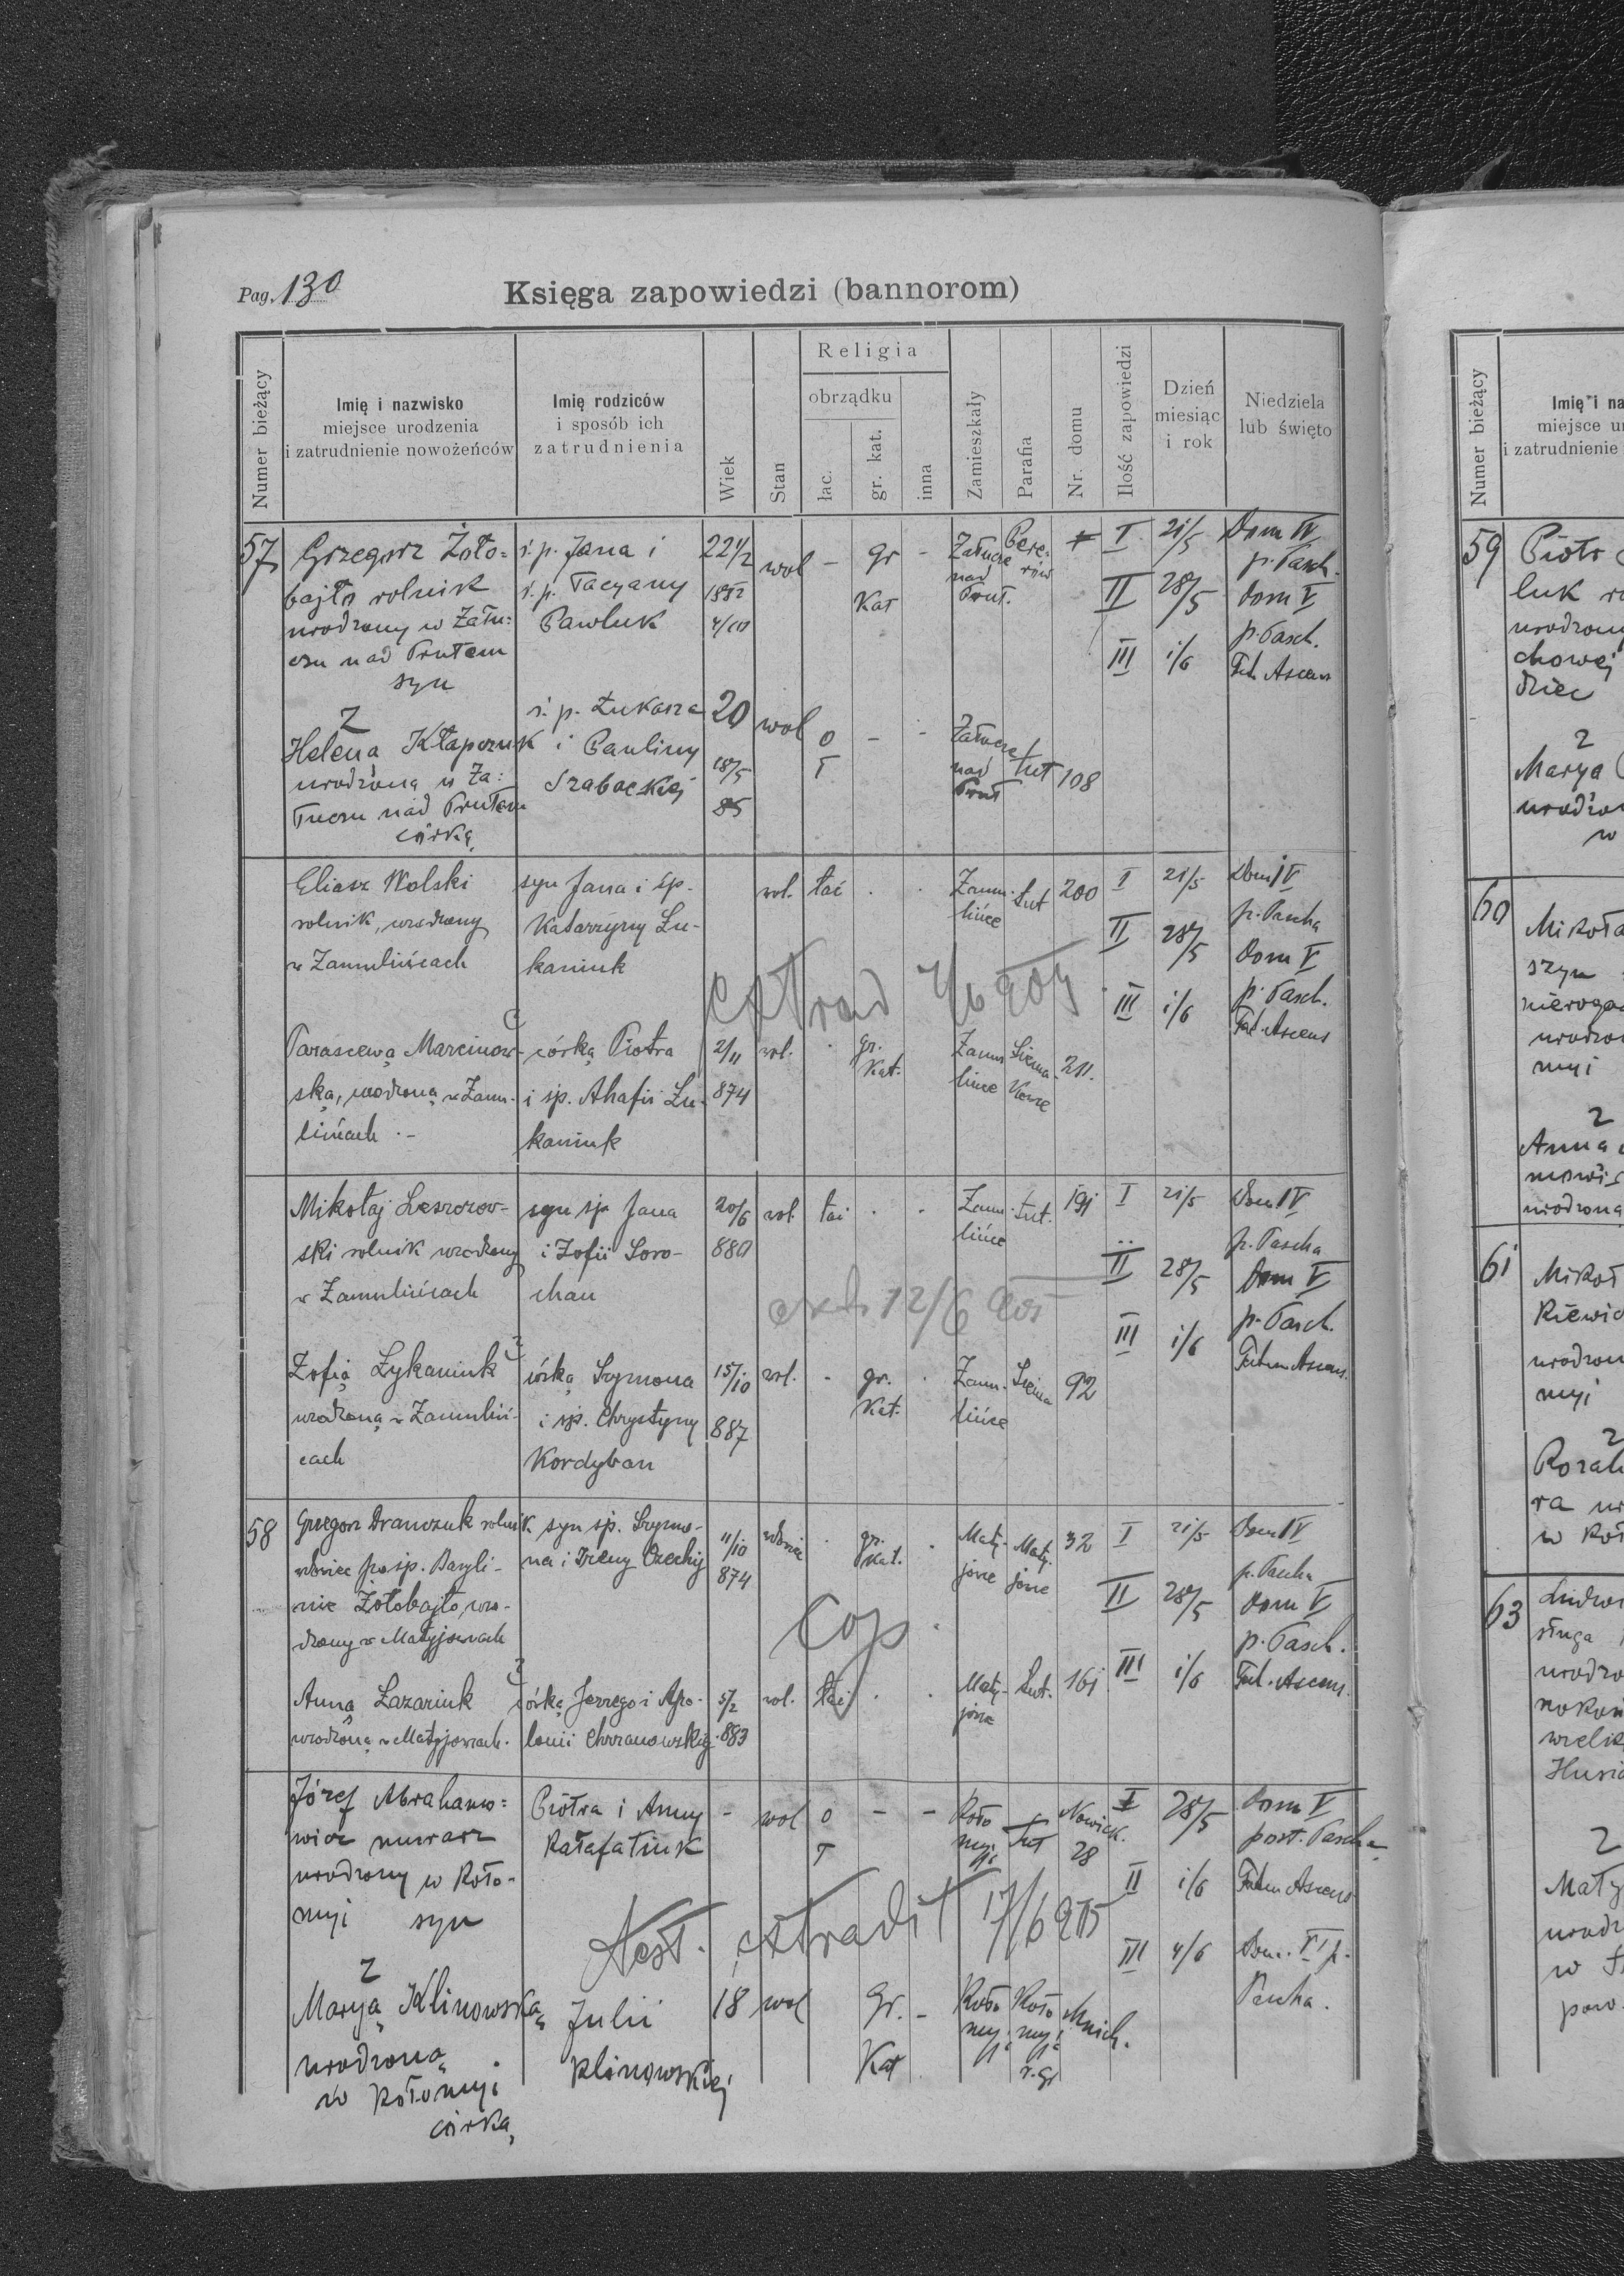 Pag. 130
Księga zapowiedzi (bannorom)
Numer bieżący
Imię i nazwisko
miejsce urodzenia
i zatrudnienie nowożeńców
Imię rodziców
i sposób ich
zatrudnienia
Wiek
Stan
Religia
obrządku
łac.
gr. kat.
inna
Zamieszkały
Parafia
Nr. domu
Ilość zapowiedzi
Dzień
miesiąc
i rok
Niedziela
lub święto
57
Grzegorz Żoło=
bajło rolnik
urodzony w Zału=
czu nad Prutem
syn
ś. p. Jana i
ś. p. Tacyany
Pawluk
22 1/2
wol
-
gr
Kat
-
Załucze
nad
Prut.
Bere-
zów
I 21/5 Dom IV
p. Pasch.
II 28/5 Dom V
p. Pasch.
III 1/6 Fest. Ascens
z
Helena Kłapczuk
urodzoną w Za=
łuczu nad Prutem
córką
ś. p. Łukasza
i Pauliny
Szabackiej
20
18/5
85
wol
o
ł
-
-
Załucze
nad
Prut
tut
108
Eliasz Wolski
rolnik, urodzony
w Zamulińcach
syn Jana i śp.
Katarzyny Łu-
kaniuk
wol.
łać
Zamu-
lińce
tut
200
I 21/5 Dom IV
p. Pascha
II 28/5 Dom V
p. Pasch.
III 1/6 Fest. Ascens
extrad 7/6 905
Parascewą Marcinow-
ską, urodzoną w Zamu-
lińcach .-
córką Piotra
i śp. Ahafii Łu-
kaniuk
2/11
874
wol.
gr.
Kat.
Zamu
lińce
Siema-
kowce
211.
Mikołaj Leszczow-
ski rolnik urodzony
w Zamulińcach
syn śp Jana
i Zofii Soro-
chan
20/6
880
wol.
łać
Zamu-
lińce
tut.
191
I 21/5 Dom IV
p. Pascha
II 28/5 Dom V
p. Pasch.
III 1/6 Fest. Ascens.
12/6 905
z
Zofią Łykaniuk
urodzoną w Zamuliń-
cach
córką Szymona
i śp. Chrystyny
Kordyban
15/10
887
wol.
gr.
Kat.
Zamu-
lińce
Siema
92
58
Grzegorz Dranczuk rolnik
wdowiec po śp. Bazyli-
nie Żołobajło, uro-
dzony w Matyjowcach
syn śp. Szymo-
na i Ireny Czechij
11/10
874
wdowiec
gr.
Kat.
Maty-
jowce
Maty-
jowce
32
I 21/5 Dom IV
p. Pascha
II 28/5 Dom V
p. Pasch.
III 1/6 Fest. Ascens.
Cop.
z
Anną Łazariuk
urodzoną w Matyjowcach.
córką Jerzego i Apo-
lonii Chrzanowskiej
5/2
883
wol.
łać
Maty-
jowce
tut.
161
Józef Abrahamo=
wicz murarz
urodzony w Koło-
myi syn
Piotra i Anny
Kałafatiuk
-
wol
o
ł
-
-
Koło
myja
tut
Nowick.
28
I 28/5 Dom V
post. Pascha
II 1/6 Fest. Ascens
III 4/6 Dom. VI p.
Pascha.
Test. extradit 17/6 905
z
Maryą Klinowską
urodzoną
w Kołomyi
córką
Julii
Klinowskiej
18
wol
Gr.
Kat
-
Koło
myja
Koło
myja
r. gr
Mnich.
59
Imię i na
miejsce u
i zatrudnienie
Piotr
luk
urodzony
chowej
z
Marya
w
60
Mikoła
szyn
urodzo
myi
z
Anna
urodzona
61
Mikoł
kiewic
urodzon
myi
z
Rozal
ra
w Koł
63
sługa
urodzo
wielk
z
w
pow.